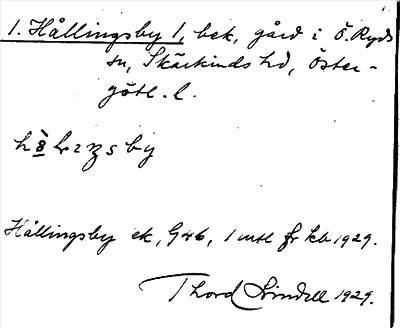 1. Hållingsby 1, bek, gård i Ö. Ryds
sn, Skärkinds hd, Öster-
götl. l.
Hållingsby ek, G46, 1 mtl fr kb 1929.
Thord Lindell 1929.